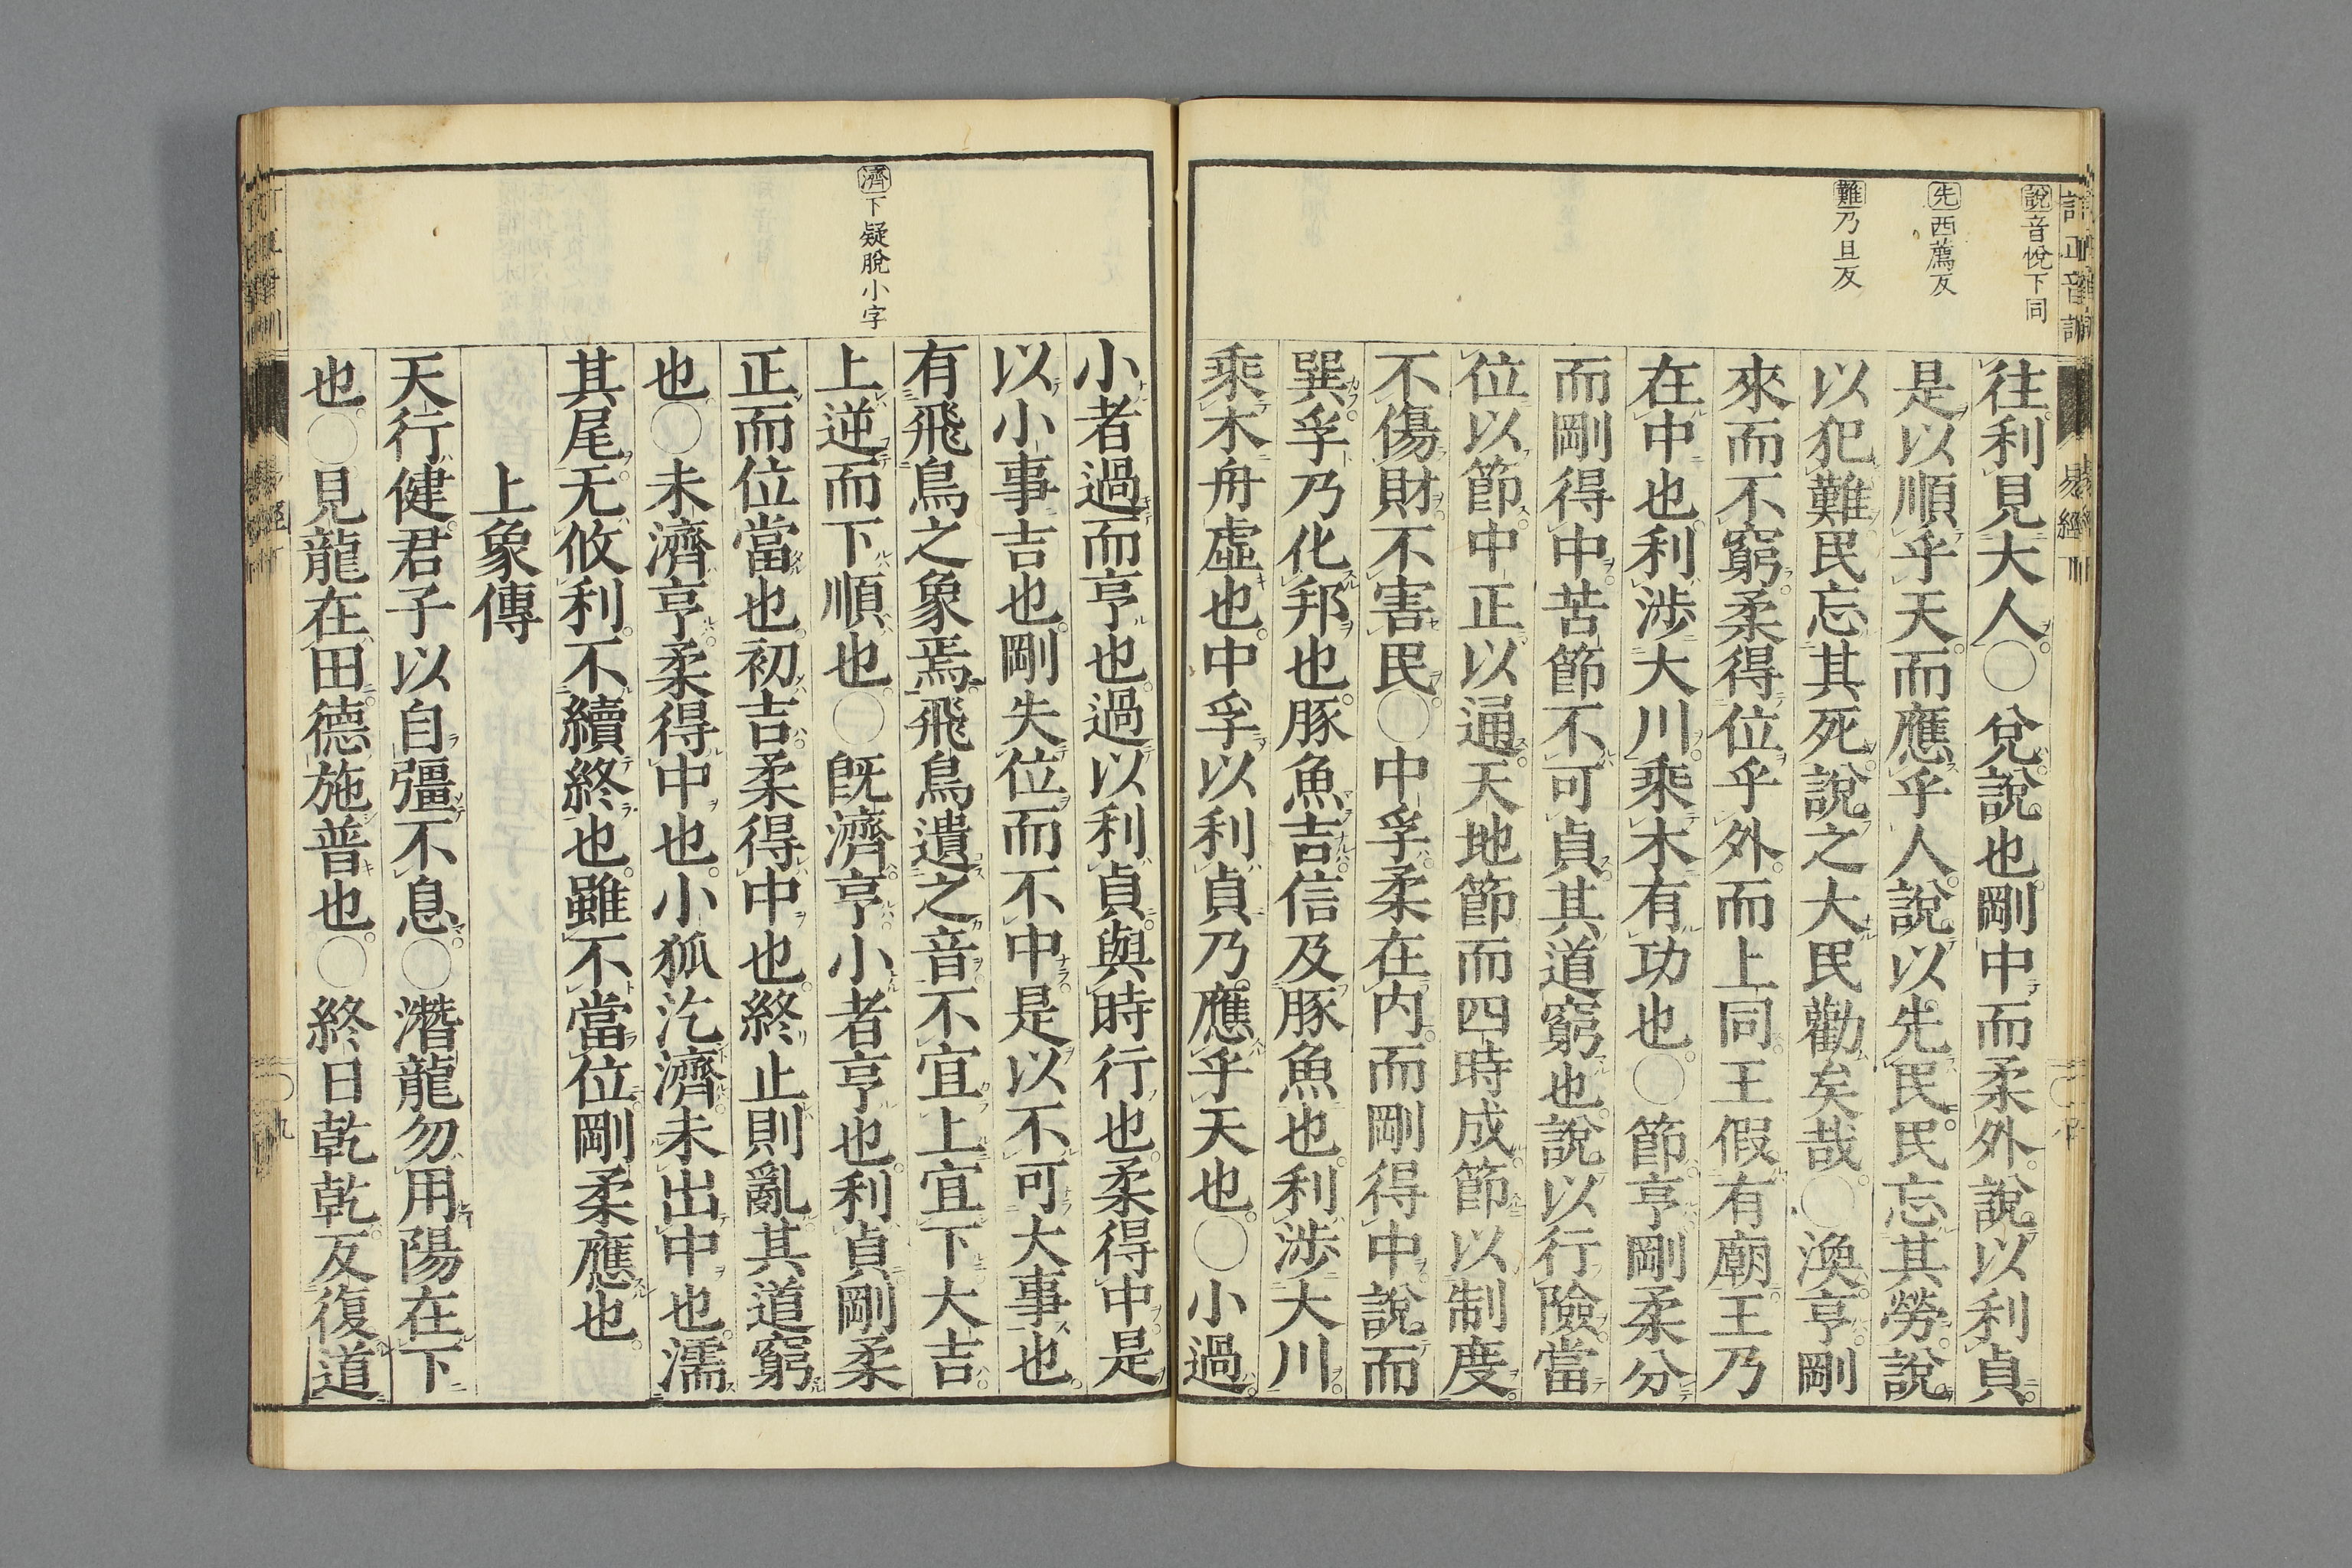 說音悅下同
先西薦反
難乃旦反
往利見大人○兌說也剛中而柔外說以利貞
是以順乎天而應乎人說以先民民忘其勞說
以犯難民忘其死說之大民勸矣哉○渙亨剛
來而不窮柔得位乎外而上同王假有廟王乃
在中也利涉大川乘木有功也○節亨剛柔分
而剛得中苦節不可貞其道窮也說以行險當
位以節中正以通天地節而四時成節以制度
不傷財不害民○中孚柔在內而剛得中說而
巽孚乃化邦也豚魚吉信及豚魚也利涉大川
乘木舟虛也中孚以利貞乃應乎天也○小過
濟下疑脫小字
小者過而亨也過以利貞與時行也柔得中是
以小事吉也剛失位而不中是以不可大事也
有飛鳥之象焉飛鳥遺之音不宜上宜下大吉
上逆而下順也○既濟亨小者亨也利貞剛柔
正而位當也初吉柔得中也終止則亂其道窮
也○未濟亨柔得中也小狐汔濟未出中也濡
其尾无攸利不續終也雖不當位剛柔應也
上象傳
天行健君子以自彊不息○潛龍勿用陽在下
也○見龍在田德施普也○終日乾乾反復道